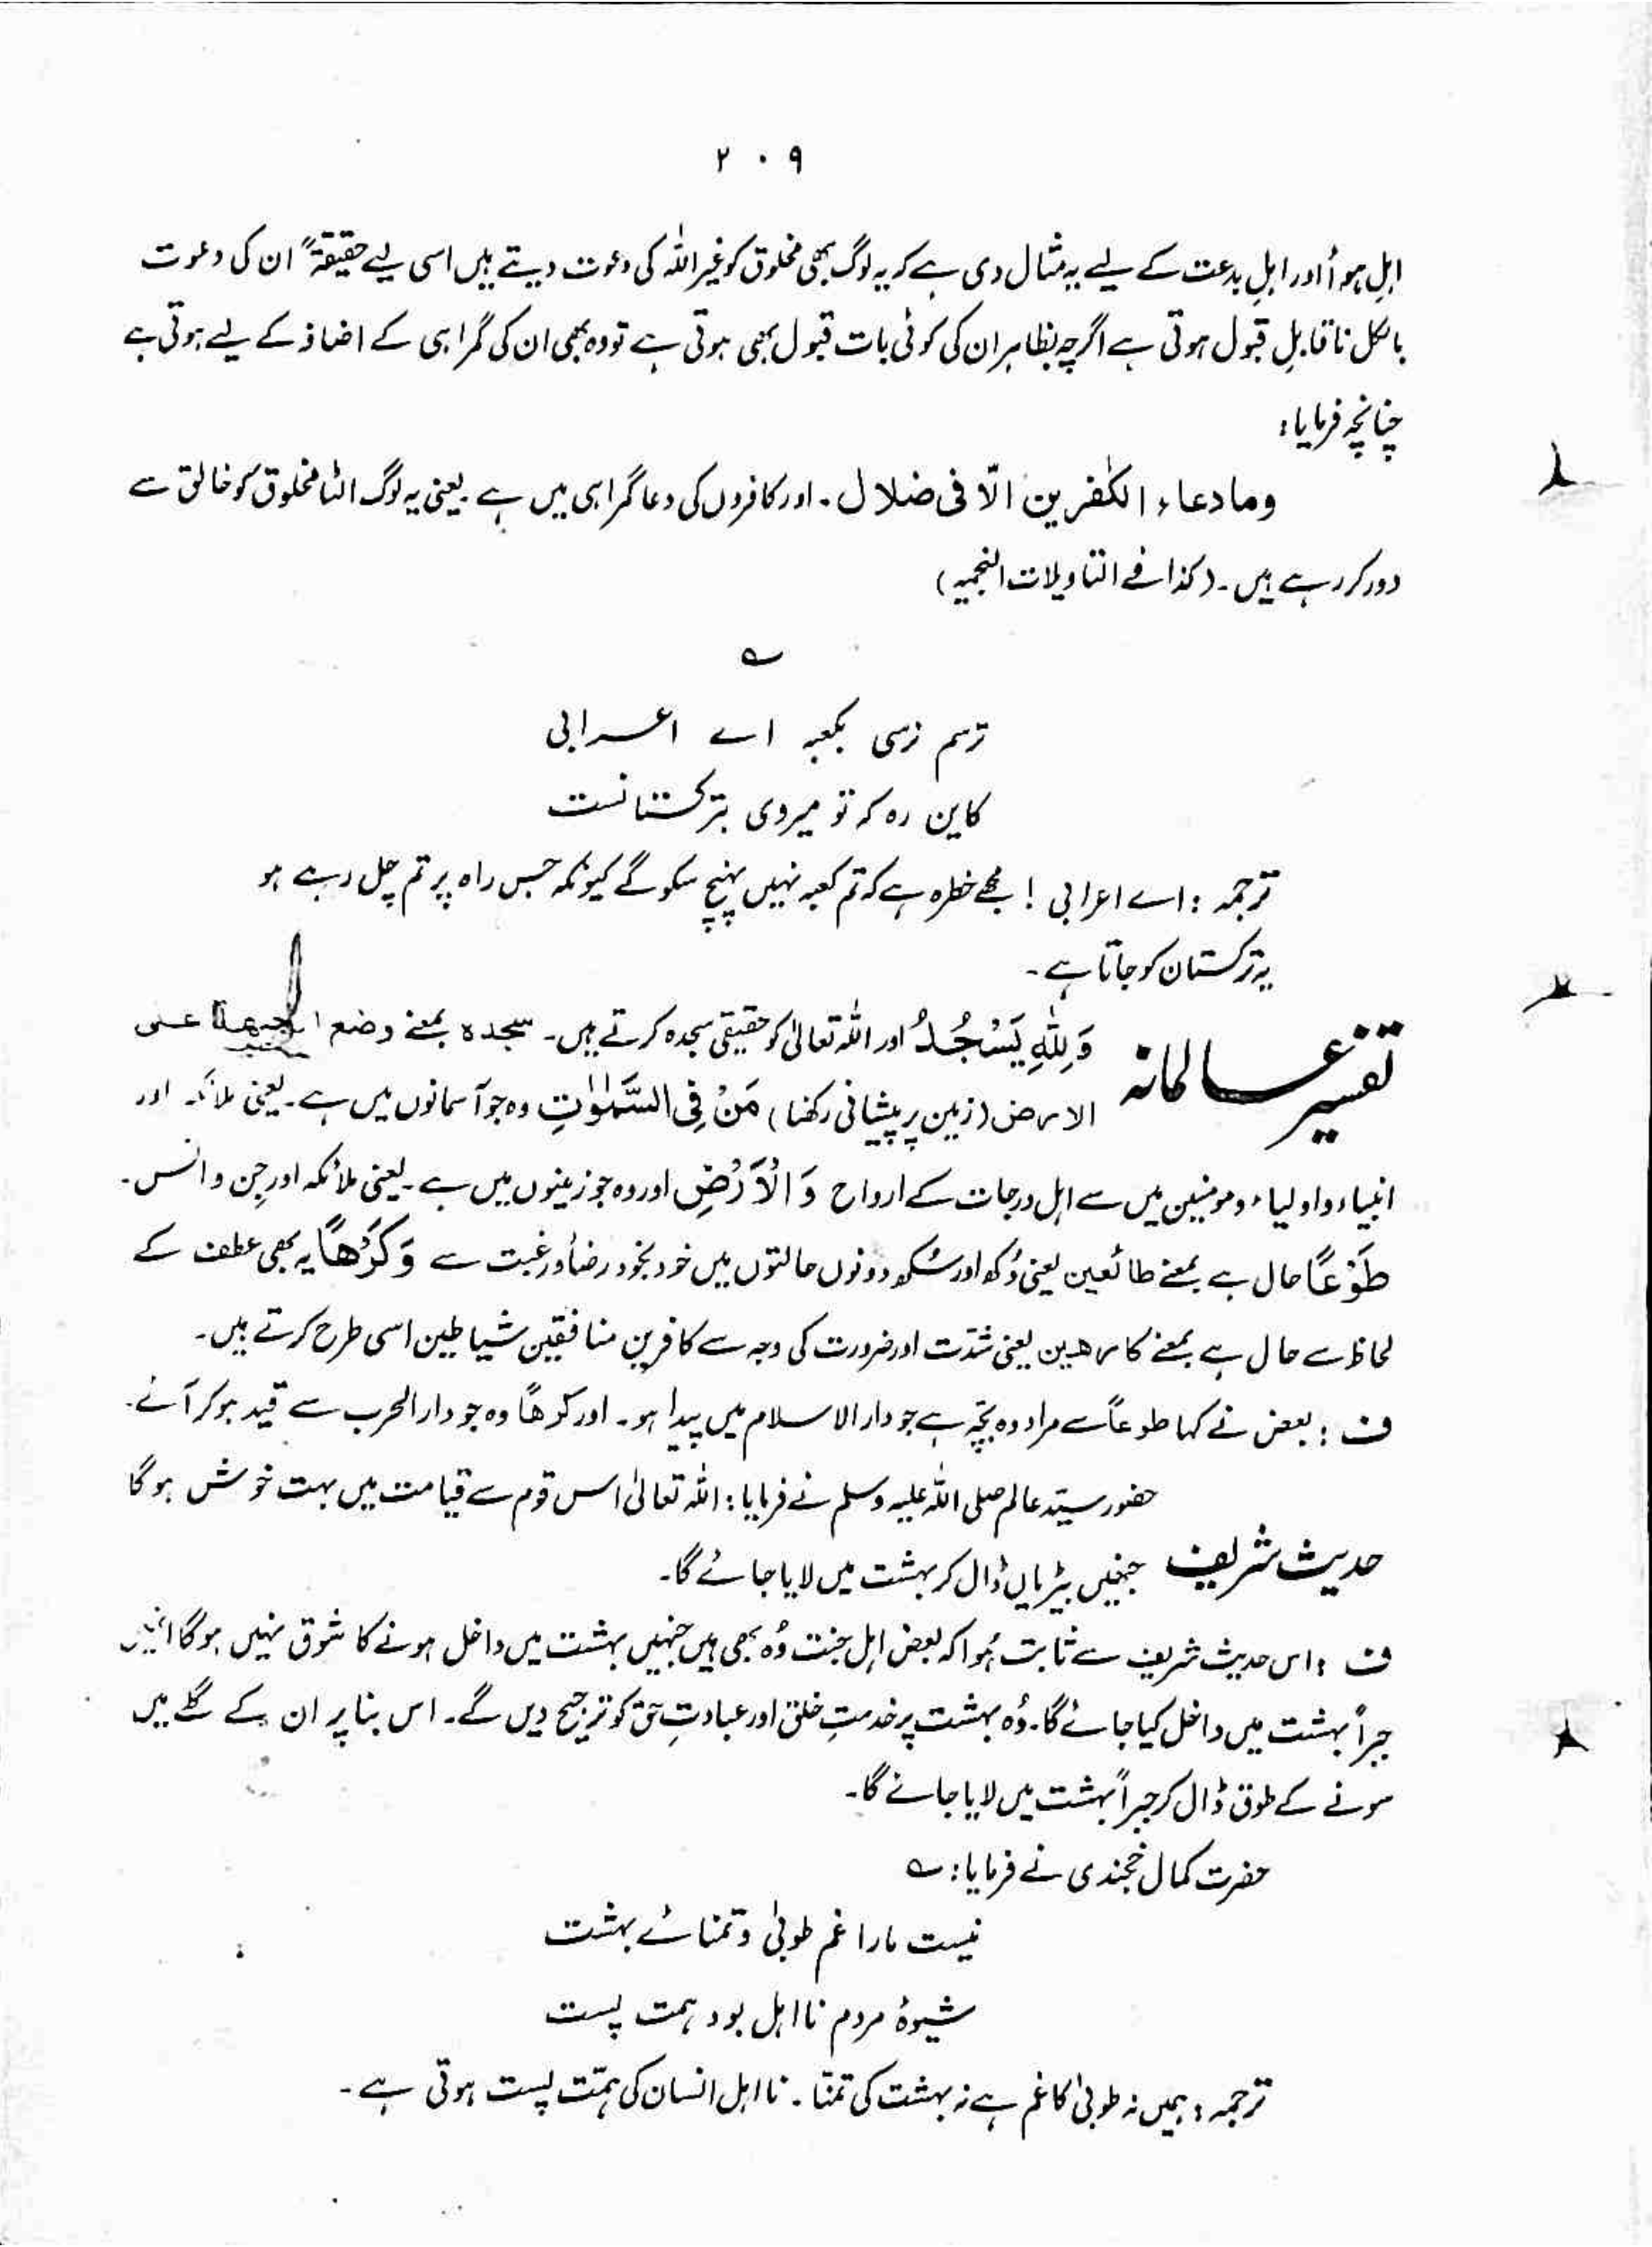 ۲۰۹
اہلِ ہوأ اور اہلِ بدعت کے لیے یہ مثال دی ہے کہ یہ لوگ بھی مخلوق کو غیر اللہ کی دعوت دیتے ہیں اسی لیے حقیقۃً ان کی دعوت
بالکل ناقابلِ قبول ہوتی ہے اگرچہ بظاہر ان کی کوئی بات قبول بھی ہوتی ہے تو وہ بھی ان کی گمراہی کے اضافہ کے لیے ہوتی ہے
چنانچہ فرمایا:
وما دعاء الکٰفرین الّا فی ضلال۔ اور کافروں کی دعا گمراہی میں ہے۔ یعنی یہ لوگ الٹا مخلوق کو خالق سے
دور کر رہے ہیں۔ (کذا فے التاویلات النجمیہ)
؎
ترسم نرسی بکعبہ اے اعرابی
کاین رہ کہ تو میروی بترکستانست
ترجمہ: اے اعرابی! مجھے خطرہ ہے کہ تم کعبہ نہیں پہنچ سکو گے کیونکہ جس راہ پر تم چل رہے ہو
یہ ترکستان کو جاتا ہے۔
تفسیر عالمانہ وَلِلّٰہِ یَسْجُدُ اور اللہ تعالیٰ کو حقیقی سجدہ کرتے ہیں۔ سجدہ بمعنے وضع الجبھۃ علی
الارض (زمین پر پیشانی رکھنا) مَنْ فِی السَّمٰوٰتِ وہ جو آسمانوں میں ہے۔ یعنی ملائکہ اور
انبیاء و اولیاء و مومنین میں سے اہل درجات کے ارواح وَالْاَرْضِ اور وہ جو زمینوں میں ہے۔ یعنی ملائکہ اور جن و انس۔
طَوْعًا حال ہے بمعنے طائعین یعنی دُکھ اور سُکھ دونوں حالتوں میں خود بخود رضأ و رغبت سے وَکَرْھًا یہ بھی عطف کے
لحاظ سے حال ہے بمعنے کارھین یعنی شدّت اور ضرورت کی وجہ سے کافرین منافقین شیاطین اسی طرح کرتے ہیں۔
ف: بعض نے کہا طوعاً سے مراد وہ بچّہ ہے جو دار الاسلام میں پیدا ہو۔ اور کرھاً وہ جو دار الحرب سے قید ہو کر آئے۔
حضور سیّد عالم صلی اللہ علیہ وسلم نے فرمایا: اللہ تعالیٰ اس قوم سے قیامت میں بہت خوش ہوگا
حدیث شریف جنھیں بیڑیاں ڈال کر بہشت میں لایا جائے گا۔
ف: اس حدیث شریف سے ثابت ہُوا کہ بعض اہل جنت وُہ بھی ہیں جنہیں بہشت میں داخل ہونے کا شوق نہیں ہوگا انہیں
جبراً بہشت میں داخل کیا جائے گا۔ وُہ بہشت پر خدمتِ خلق اور عبادتِ حق کو ترجیح دیں گے۔ اس بنا پر ان کے گلے میں
سونے کے طوق ڈال کر جبراً بہشت میں لایا جائے گا۔
حضرت کمال خجندی نے فرمایا: ؎
نیست مارا غم طوبیٰ و تمنائے بہشت
شیوۂ مردم نااہل بود ہمت پست
ترجمہ: ہمیں نہ طوبیٰ کا غم ہے نہ بہشت کی تمنّا۔ نااہل انسان کی ہمّت پست ہوتی ہے۔